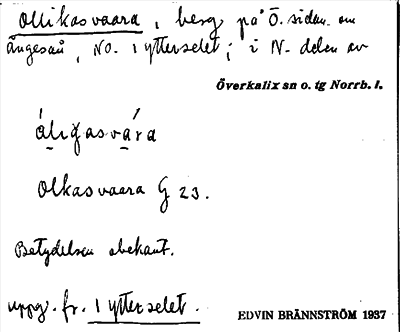 Ollikasvaara, berg på Ö. sidan om
Ängesån, NO. 1 ytterselet; i N. delen av
Överkalix sn o. tg Norrb. l.
Olkasvaara G 23.
Betydelsen obekant.
uppg. fr. 1 ytterselet.
EDVIN BRÄNNSTRÖM 1937